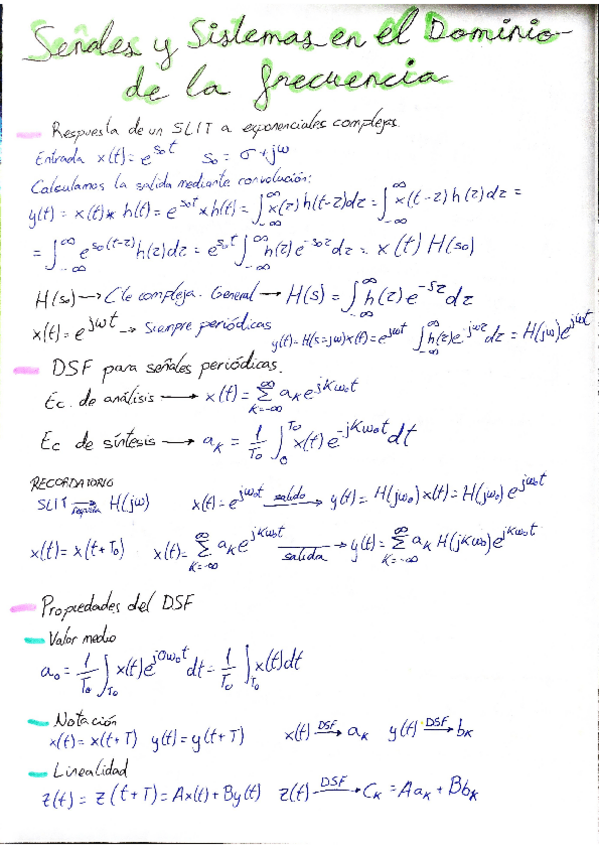 Señales y Sistemas en el Dominio
de la frecuencia
Respuesta de un SLIT a exponenciales complejas.
Entrada x(t) = e^{s₀t} s₀ = σ + jω
Calculamos la salida mediante convolución:
y(t) = x(t) * h(t) = e^{s₀t} * h(t) = ∫_{-∞}^{∞} x(z) h(t-z)dz = ∫_{-∞}^{∞} x(t-z) h(z) dz =
= ∫_{-∞}^{∞} e^{s₀(t-z)} h(z)dz = e^{s₀t} ∫_{-∞}^{∞} h(z) e^{-s₀z} dz = x(t) H(s₀)
H(s₀) → Cte compleja. General → H(s) = ∫_{-∞}^{∞} h(z) e^{-sz} dz
x(t) = e^{jωt} → Siempre periódicas
y(t) = H(s=jω)x(t) = e^{jωt} ∫_{-∞}^{∞} h(z)e^{jωz} dz = H(jω)e^{jωt}
DSF para señales periódicas.
Ec. de análisis → x(t) = Σ_{K=-∞}^{∞} a_K e^{jKω₀t}
Ec de síntesis → a_K = 1/T₀ ∫_0^{T₀} x(t) e^{-jKω₀t} dt
RECORDATORIO
SLIT → H(jω) x(t) = e^{jω₀t} salida → y(t) = H(jω₀) x(t) = H(jω₀) e^{jω₀t}
x(t) = x(t+T₀) x(t) = Σ_{K=-∞}^{∞} a_K e^{jKω₀t} salida → y(t) = Σ_{K=-∞}^{∞} a_K H(jKω₀) e^{jKω₀t}
Propiedades del DSF
Valor medio
a₀ = 1/T₀ ∫_{T₀} x(t) e^{j0ω₀t} dt = 1/T₀ ∫_{T₀} x(t) dt
Notación
x(t) = x(t+T) y(t) = y(t+T) x(t) DSF→ a_K y(t) DSF→ b_K
Linealidad
z(t) = z(t+T) = Ax(t) + By(t) z(t) DSF→ C_K = Aa_K + Bb_K